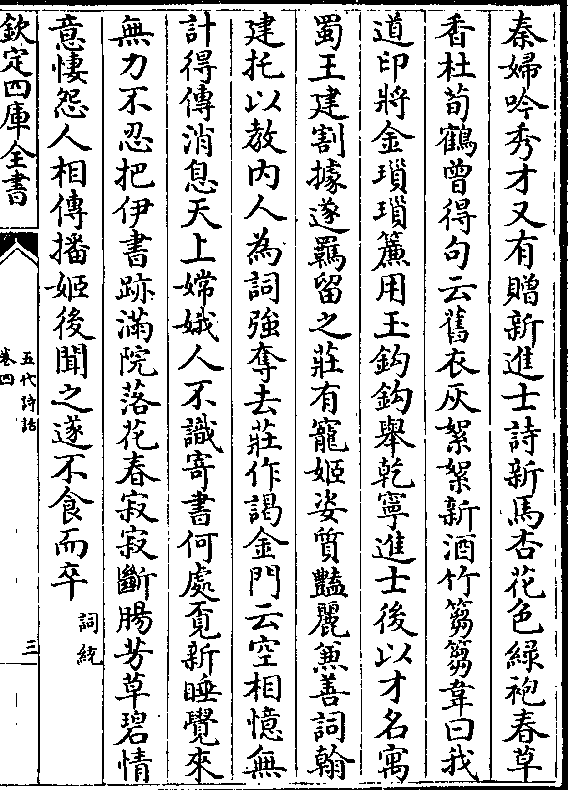 秦婦吟秀才又有贈新進士詩新馬杏花色綠袍春草
香杜荀鶴曾得句云舊衣灰絮絮新酒竹篘篘韋曰我
道印將金瑣瑣簾用玉鈎鈎舉乾寧進士後以才名寓
蜀王建割據遂羈留之莊有寵姬姿質豔麗兼善詞翰
建托以教內人為詞強奪去莊作謁金門云空相憶無
計得傳消息天上嫦娥人不識寄書何處覔新睡覺來
無力不忍把伊書跡滿院落花春寂寂斷腸芳草碧情
意悽怨人相傳播姬後聞之遂不食而卒詞統
欽定四庫全書
五代詩話
卷四
三